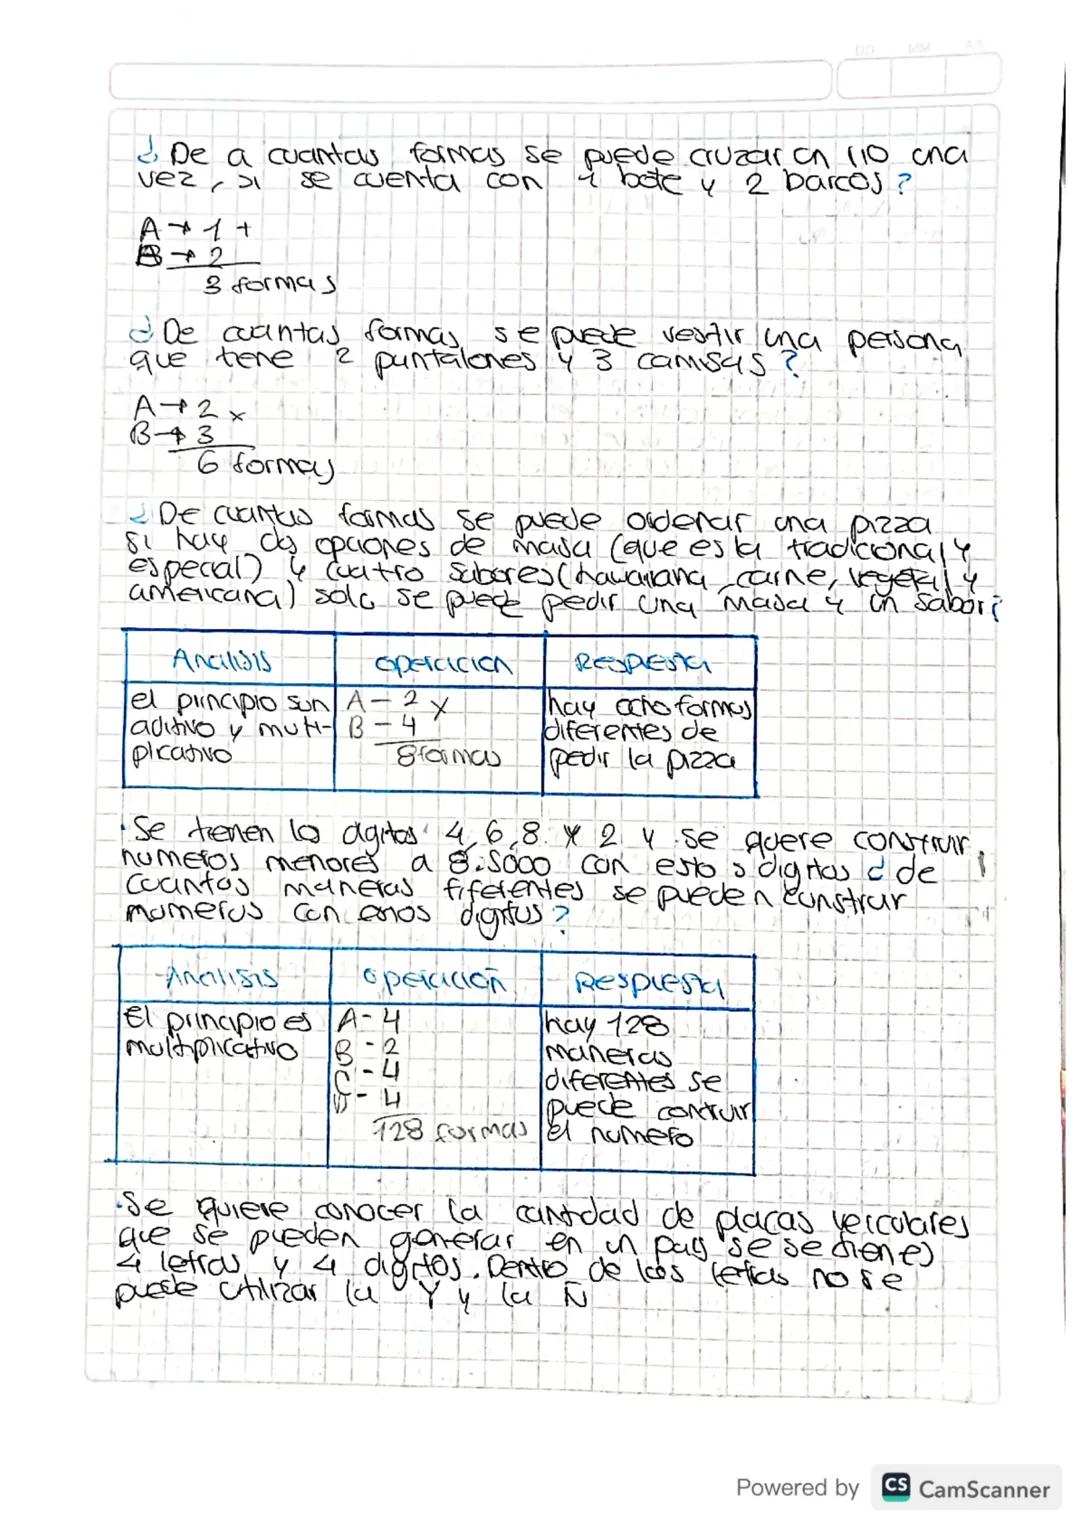 DD MM AA
¿De a cuantas formas se puede cruzar un rio una
vez, si se cuenta con 1 bote y 2 barcos?
A → 1 +
B → 2
3 formas
¿De cuantas formas se puede vestir una persona
que tene 2 puntalones y 3 camisas?
A → 2 x
B → 3
6 formas
¿De cuantas formas se puede ordenar una pizza
si hay dos opciones de masa (que es la tradicional y
especal) y cuatro sabores (hawaiana, carne, vegetal y
americana) solo se puede pedir una masa y un sabor?
Analisis operacion Respuesta
el principio sun A - 2 x hay ocho formas
aditivo y multi- B - 4 diferentes de
plcativo 8 formas pedir la pizza
. Se tienen lo digitos 4, 6, 8 y 2 y se quere construir
numeros menores a 8.5000 con esto s digitos ¿ de
cuantas maneras fiferentes se pueden construir
mumeros con esos digitus?
Analisis operacion Respuesta
El principio es A - 4 hay 128
multiplicativo B - 2 maneras
C - 4 diferentes se
D - 4 puede contruir
128 formas el numero
. Se quiere conocer la cantdad de placas veiculares
que se pueden generar en un pais se se tienen
4 letras y 4 digitos. Dentro de las letras no se
puede utilizar la Y y la Ñ
Powered by CS CamScanner